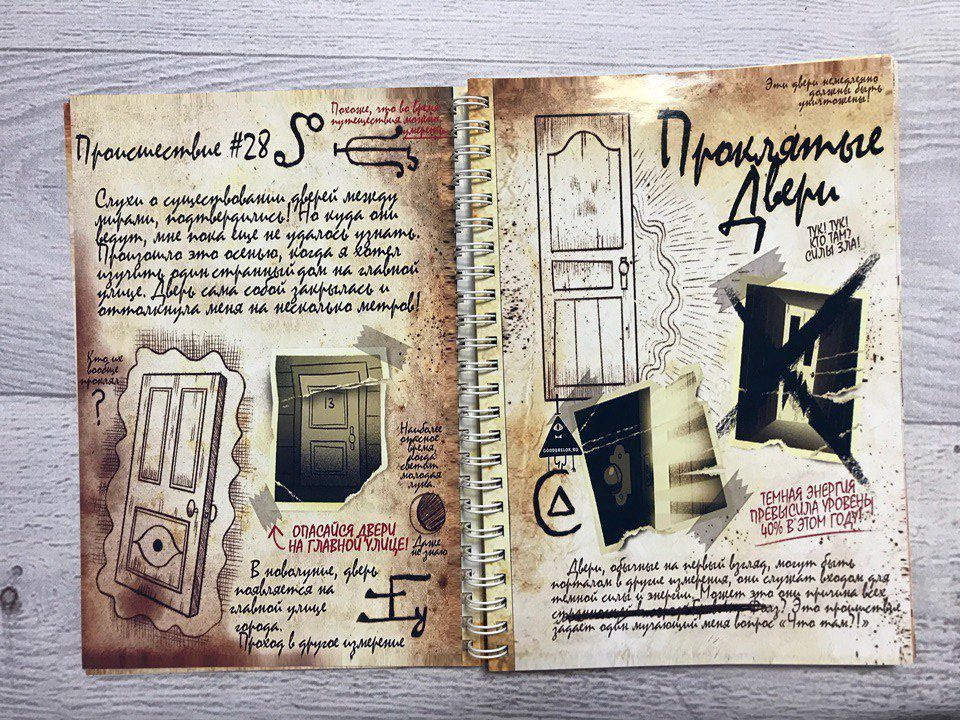 Происшествие #28
Похоже, что во время
путешествия можно
умереть
Слухи о существовании дверей между
мирами, подтвердились! Но куда они
ведут, мне пока еще не удалось узнать.
Произошло это осенью, когда я хотел
изучить один странный дом на главной
улице. Дверь сама собой закрылась и
оттолкнула меня на несколько метров!
Кто их
вообще
проклял
?
13
Наиболее
опасное
время,
когда
светит
молодая
луна.
ОПАСАЙСЯ ДВЕРИ
НА ГЛАВНОЙ УЛИЦЕ!
Даже
не знаю
В новолуние, дверь
появляется на
главной улице
города.
Проход в другое измерение
Эти двери немедленно
должны быть
уничтожены!
Проклятые
Двери
ТУК! ТУК!
КТО ТАМ?
СИЛЫ ЗЛА!
GOODBRELOK.RU
ТЕМНАЯ ЭНЕРГИЯ
ПРЕВЫСИЛА УРОВЕНЬ
40% В ЭТОМ ГОДУ!
Двери, обычные на первый взгляд, могут быть
порталом в другие измерения, они служат входом для
тёмной силы и энергии. Может это они причина всех
странностей в городе Фолз? Это происшествие
задает один мучающий меня вопрос «Что там?!»